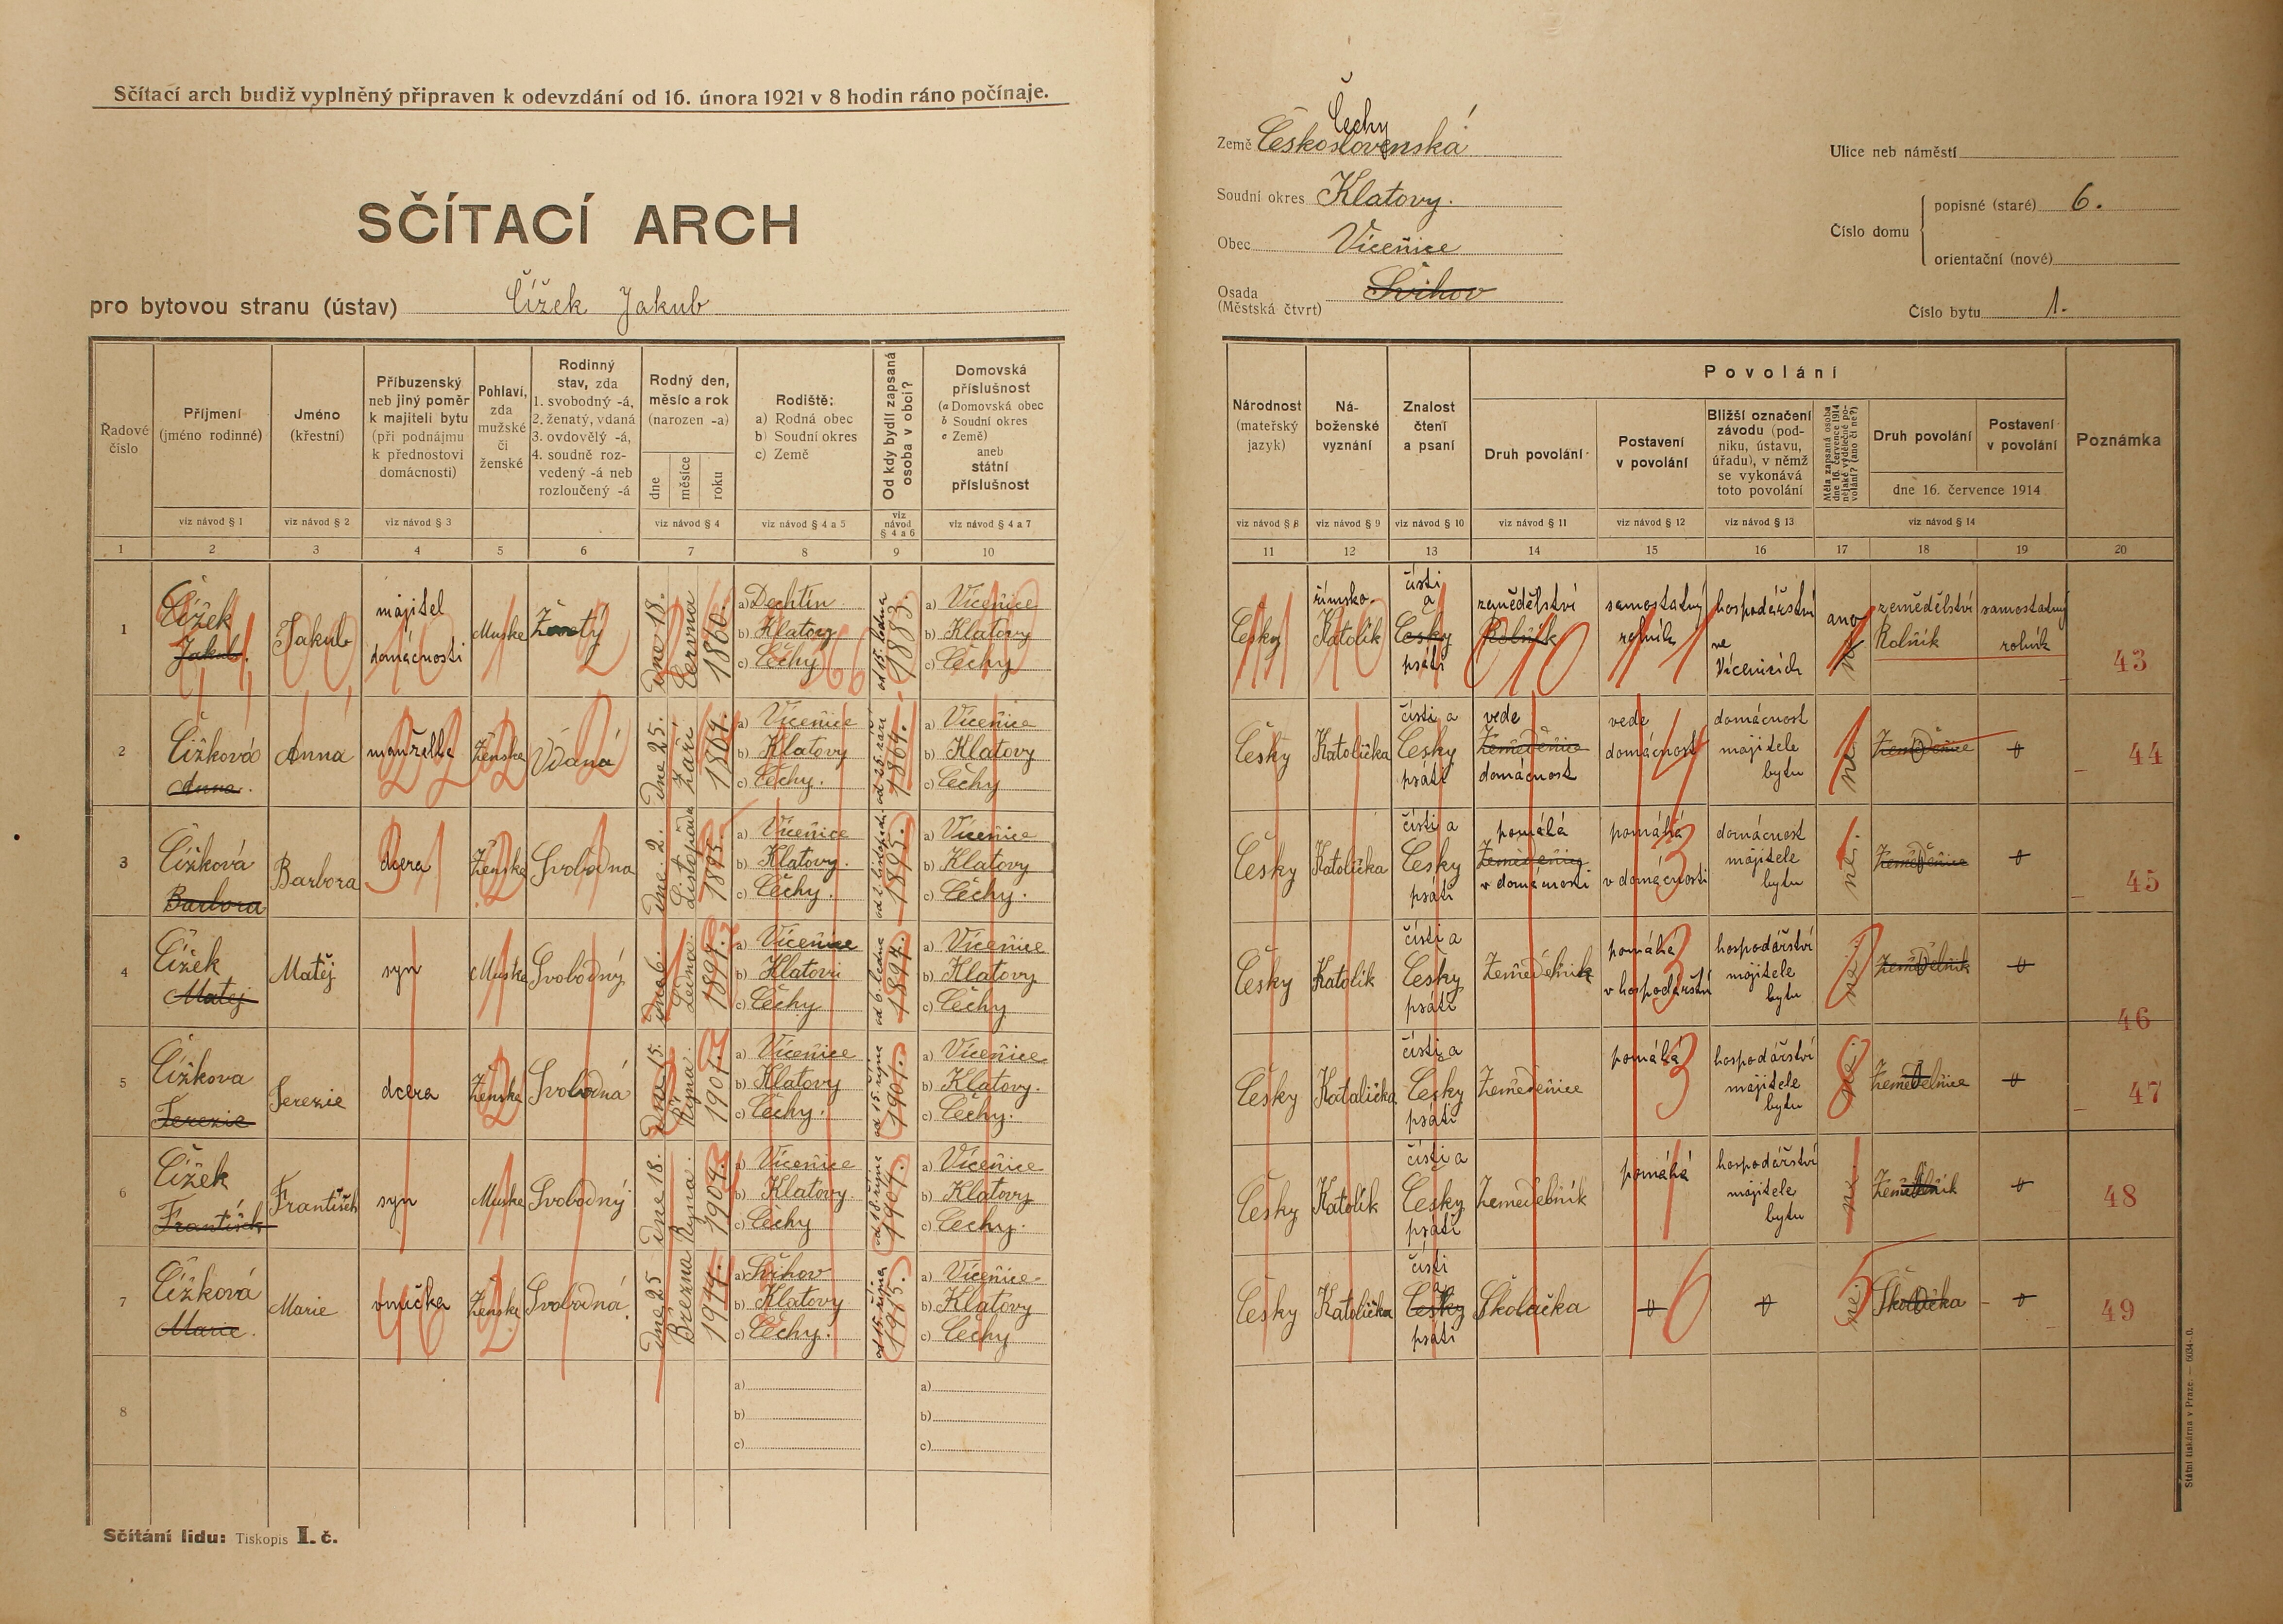 Sčítací arch budiž vyplněný připraven k odevzdání od 16. února 1921 v 8 hodin ráno počínaje.
SČÍTACÍ ARCH
pro bytovou stranu (ústav) Čížek Jakub
Řadové číslo
Příjmení (jméno rodinné) viz návod § 1
Jméno (křestní) viz návod § 2
Příbuzenský neb jiný poměr k majiteli bytu (při podnájmu k přednostovi domácnosti) viz návod § 3
Pohlaví, zda mužské či ženské
Rodinný stav, zda 1. svobodný -á, 2. ženatý, vdaná 3. ovdovělý -á, 4. soudně rozvedený -á neb rozloučený -á
Rodný den, měsíc a rok (narozen -a) dne měsíce roku viz návod § 4
Rodiště: a) Rodná obec b) Soudní okres c) Země viz návod § 4 a 5
Od kdy bydlí zapsaná osoba v obci? viz návod § 4 a 6
Domovská příslušnost (a Domovská obec b Soudní okres c Země) aneb státní příslušnost viz návod § 4 a 7
1 2 3 4 5 6 7 8 9 10
1 Čížek Jakub. Jakub majitel domácnosti Muske Ženatý Dne 18. Června 1860. a) Dechtín b) Klatovy c) Čechy od 15. ledna 1883. a) Vícenice b) Klatovy c) Čechy
2 Čížková Anna. Anna manželka Ženske Vdaná Dne 25. Září 1864. a) Vícenice b) Klatovy c) Čechy. od 25. září 1864. a) Vícenice b) Klatovy c) Čechy
3 Čížková Barbora Barbora dcera Ženske Svobodna Dne 2. Listopadu 1895. a) Vícenice b) Klatovy. c) Čechy. od 2. listopadu 1895. a) Vícenice b) Klatovy c) Čechy.
4 Čížek Matej Matěj syn Muske Svobodný Dne 6. Ledna. 1897. a) Vícenice b) Klatovi c) Čechy od 6. ledna 1897. a) Vícenice b) Klatovy c) Čechy
5 Čížkova Terezie Terezie dcera Ženske Svobodná Dne 15. Října. 1901. a) Vícenice b) Klatovy c) Čechy. od 15. října 1901. a) Vícenice b) Klatovy. c) Čechy.
6 Čížek František František syn Muske Svobodný Dne 18. Října. 1904. a) Vícenice b) Klatovy c) Čechy od 18. října 1904. a) Vícenice b) Klatovy c) Čechy.
7 Čížková Marie. Marie vnučka Ženske Svobodná Dne 25 Března 1914. a) Švihov b) Klatovy c) Čechy. od 15. října 1915. a) Vícenice b) Klatovy c) Čechy
8 a) b) c) a) b) c)
Sčítání lidu: Tiskopis I. č.
Čechy
Země Československá
Soudní okres Klatovy.
Obec Vícenice
Osada (Městská čtvrt) Švihov
Ulice neb náměstí
Číslo domu popisné (staré) 6.
orientační (nové)
Číslo bytu 1.
Národnost (mateřský jazyk) viz návod § 8
Náboženské vyznání viz návod § 9
Znalost čtení a psaní viz návod § 10
Povolání
Druh povolání viz návod § 11
Postavení v povolání viz návod § 12
Bližší označení závodu (podniku, ústavu, úřadu), v němž se vykonává toto povolání viz návod § 13
Měla zapsaná osoba dne 16. července 1914 nějaké výdělečné povolání? (ano či ne?)
Druh povolání Postavení v povolání dne 16. července 1914 viz návod § 14
Poznámka
11 12 13 14 15 16 17 18 19 20
Česky římsko- Katolík čísti a Česky psáti zemědělství Rolník samostatný rolník hospodářství ve Vícenicích ano ne zemědělství Rolník samostatný rolník 43
Česky Katolička čísti a Česky psáti vede domácnost vede domácnost domácnost majitele bytu ne 44
Česky Katolička čísti a Česky psáti pomáhá v domácnosti pomáhá v domácnosti domácnost majitele bytu ne. 45
Česky Katolík čísti a Česky psáti Zemědělník pomáha v hospodářství hospodářství majitele bytu ne. Zemědělnik 46
Česky Katalička čísti a Česky psáti Zemědelnice pomáhá hospodářství majitele bytu ne. Zemědelnice 47
Česky Katolík čísti a Česky psáti Zemědělník pomáhá hospodářství majitele bytu ne. Zemědělník 48
Česky Katolička čísti a Česky psáti Školačka ne. Školačka 49
Státní tiskárna v Praze. — 6034-0.